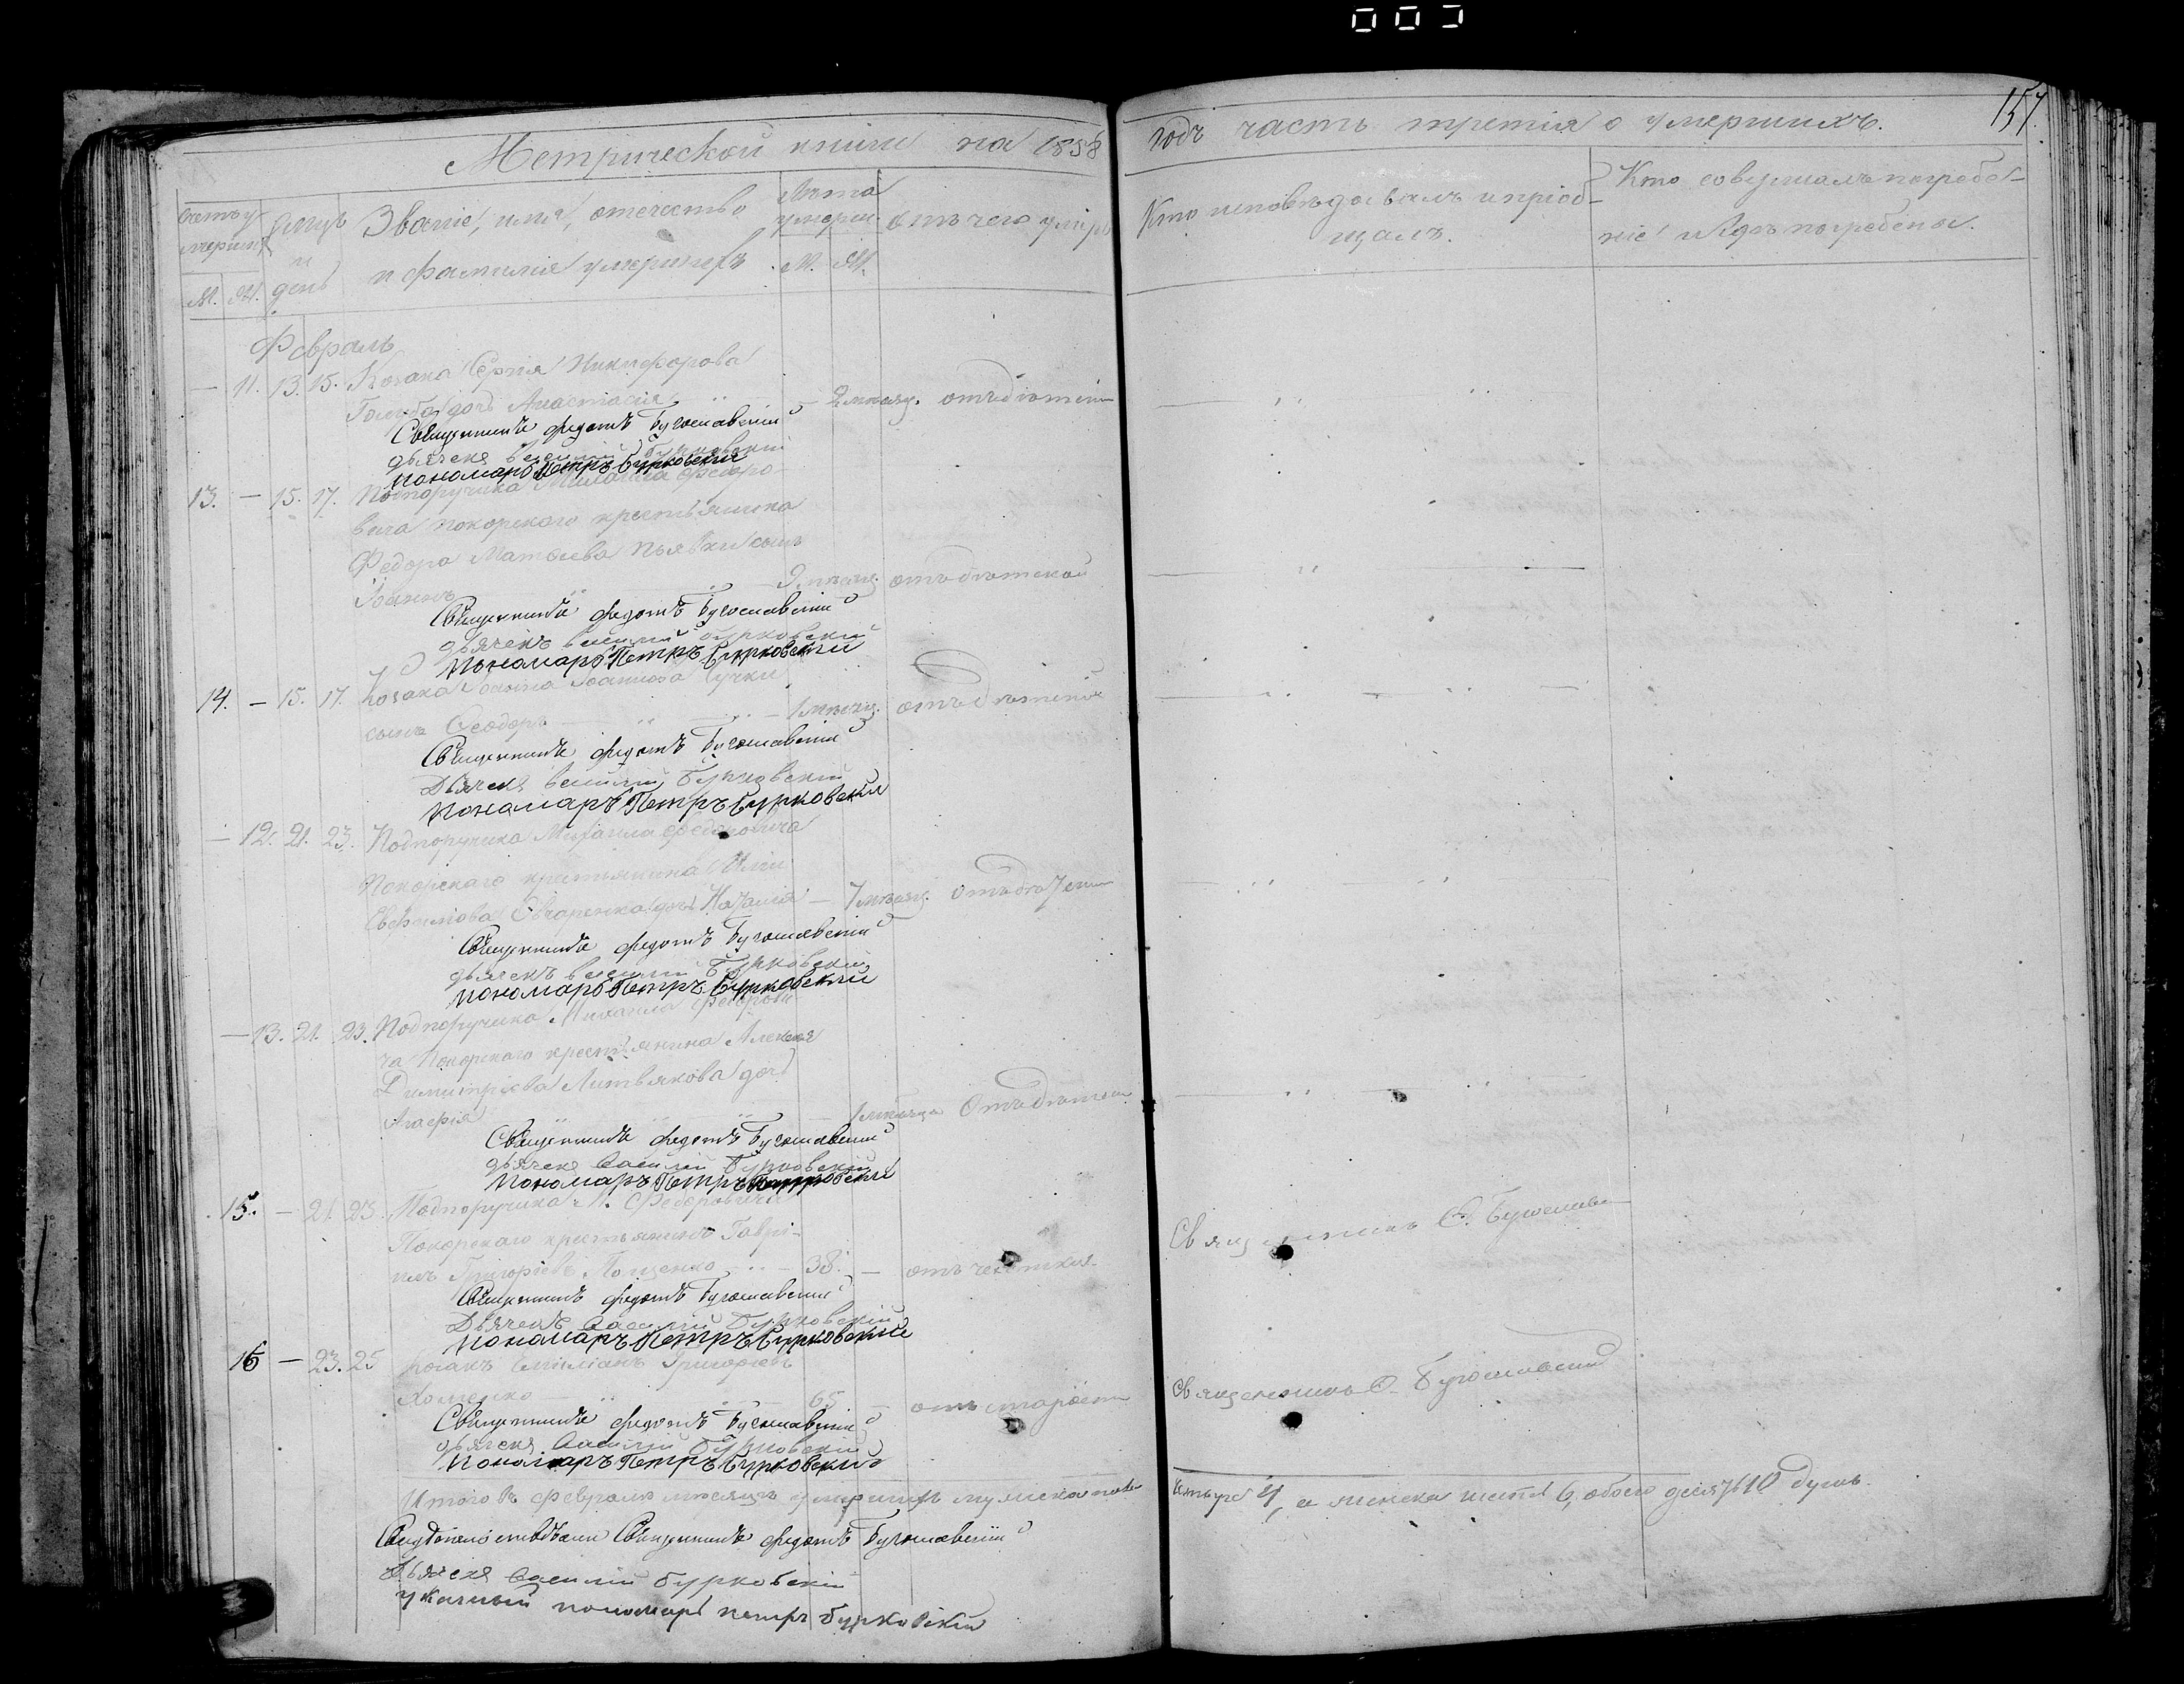 157
Метрической книги на 1858 годъ часть третія о умершихъ.
Счетъ умершихъ
М. Ж.
Мѣсяцъ и день
Званіе, имя, отечество
и фамилія умершихъ
Лѣта умерш.
М. Ж.
Отъ чего умеръ
Кто исповѣдовалъ и пріоб-
щалъ.
Кто совершалъ погребе-
ніе и гдѣ погребены.
Февраль
— 11. 13. 15. Козака Сергія Никифорова
дочь Анастасія — 2 мѣсяц. отъ
Священникъ Федотъ Бугославскій
дьячекъ Василій Бурковскій
пономарь Петръ Бурковскій
13. — 15. 17. Подпоручика Михаила Федоро-
вича Покорского крестьянина
Федора Матвѣева Пьявки сынъ
Іоаннъ мѣсяц. отъ
Священникъ Федотъ Бугославскій
дьячекъ Василій Бурковскій
пономарь Петръ Бурковскій
14. — 15. 17. Козака Іоанна Іоаннова
сынъ Феодоръ — 1 мѣсяц. отъ
Священникъ Федотъ Бугославскій
Дьячекъ Василій Бурковскій
пономарь Петръ Бурковскій
— 12. 21. 23. Подпоручика Михаила Федоровича
Покорского крестьянина
Евфимова Овчаренка дочь Наталія — 7 мѣсяц. отъ
Священникъ Федотъ Бугославскій
дьячекъ Василій Бурковскій
пономарь Петръ Бурковскій
— 13. 21. 23. Подпоручика Михаила Федорови-
ча Покорского крестьянина Алексея
Димитріева Литвякова дочь
Агафія — 1 мѣсяца Отъ
Священникъ Федотъ Бугославскій
дьячекъ Василій Бурковскій
Пономарь Петръ Бурковскій
15. — 21. 23. Подпоручика М. Федоровича
Покорского крестьянинъ Гаврі-
илъ Григоріевъ — 38. — отъ чехотки Священникъ Ѳ. Бугославс
Священникъ Федотъ Бугославскій
Дьячекъ Василій Бурковскій
пономарь Петръ Бурковскій
16 — 23. 25 Козакъ Еміліанъ Григоріевъ
Хоменко — 65 — отъ старости Священникъ Ѳ. Бугославскій
Священникъ Федотъ Бугославскій
дьячекъ Василій Бурковскій
Пономарь Петръ Бурковскій
Итого въ Февралѣ мѣсяцѣ умершихъ мужеска пола четыре 4, а женска шесть 6, обоего десять 10 душъ.
Священникъ Федотъ Бугославскій
Дьячекъ Василій Бурковскій
указный пономарь петръ Бурковскій